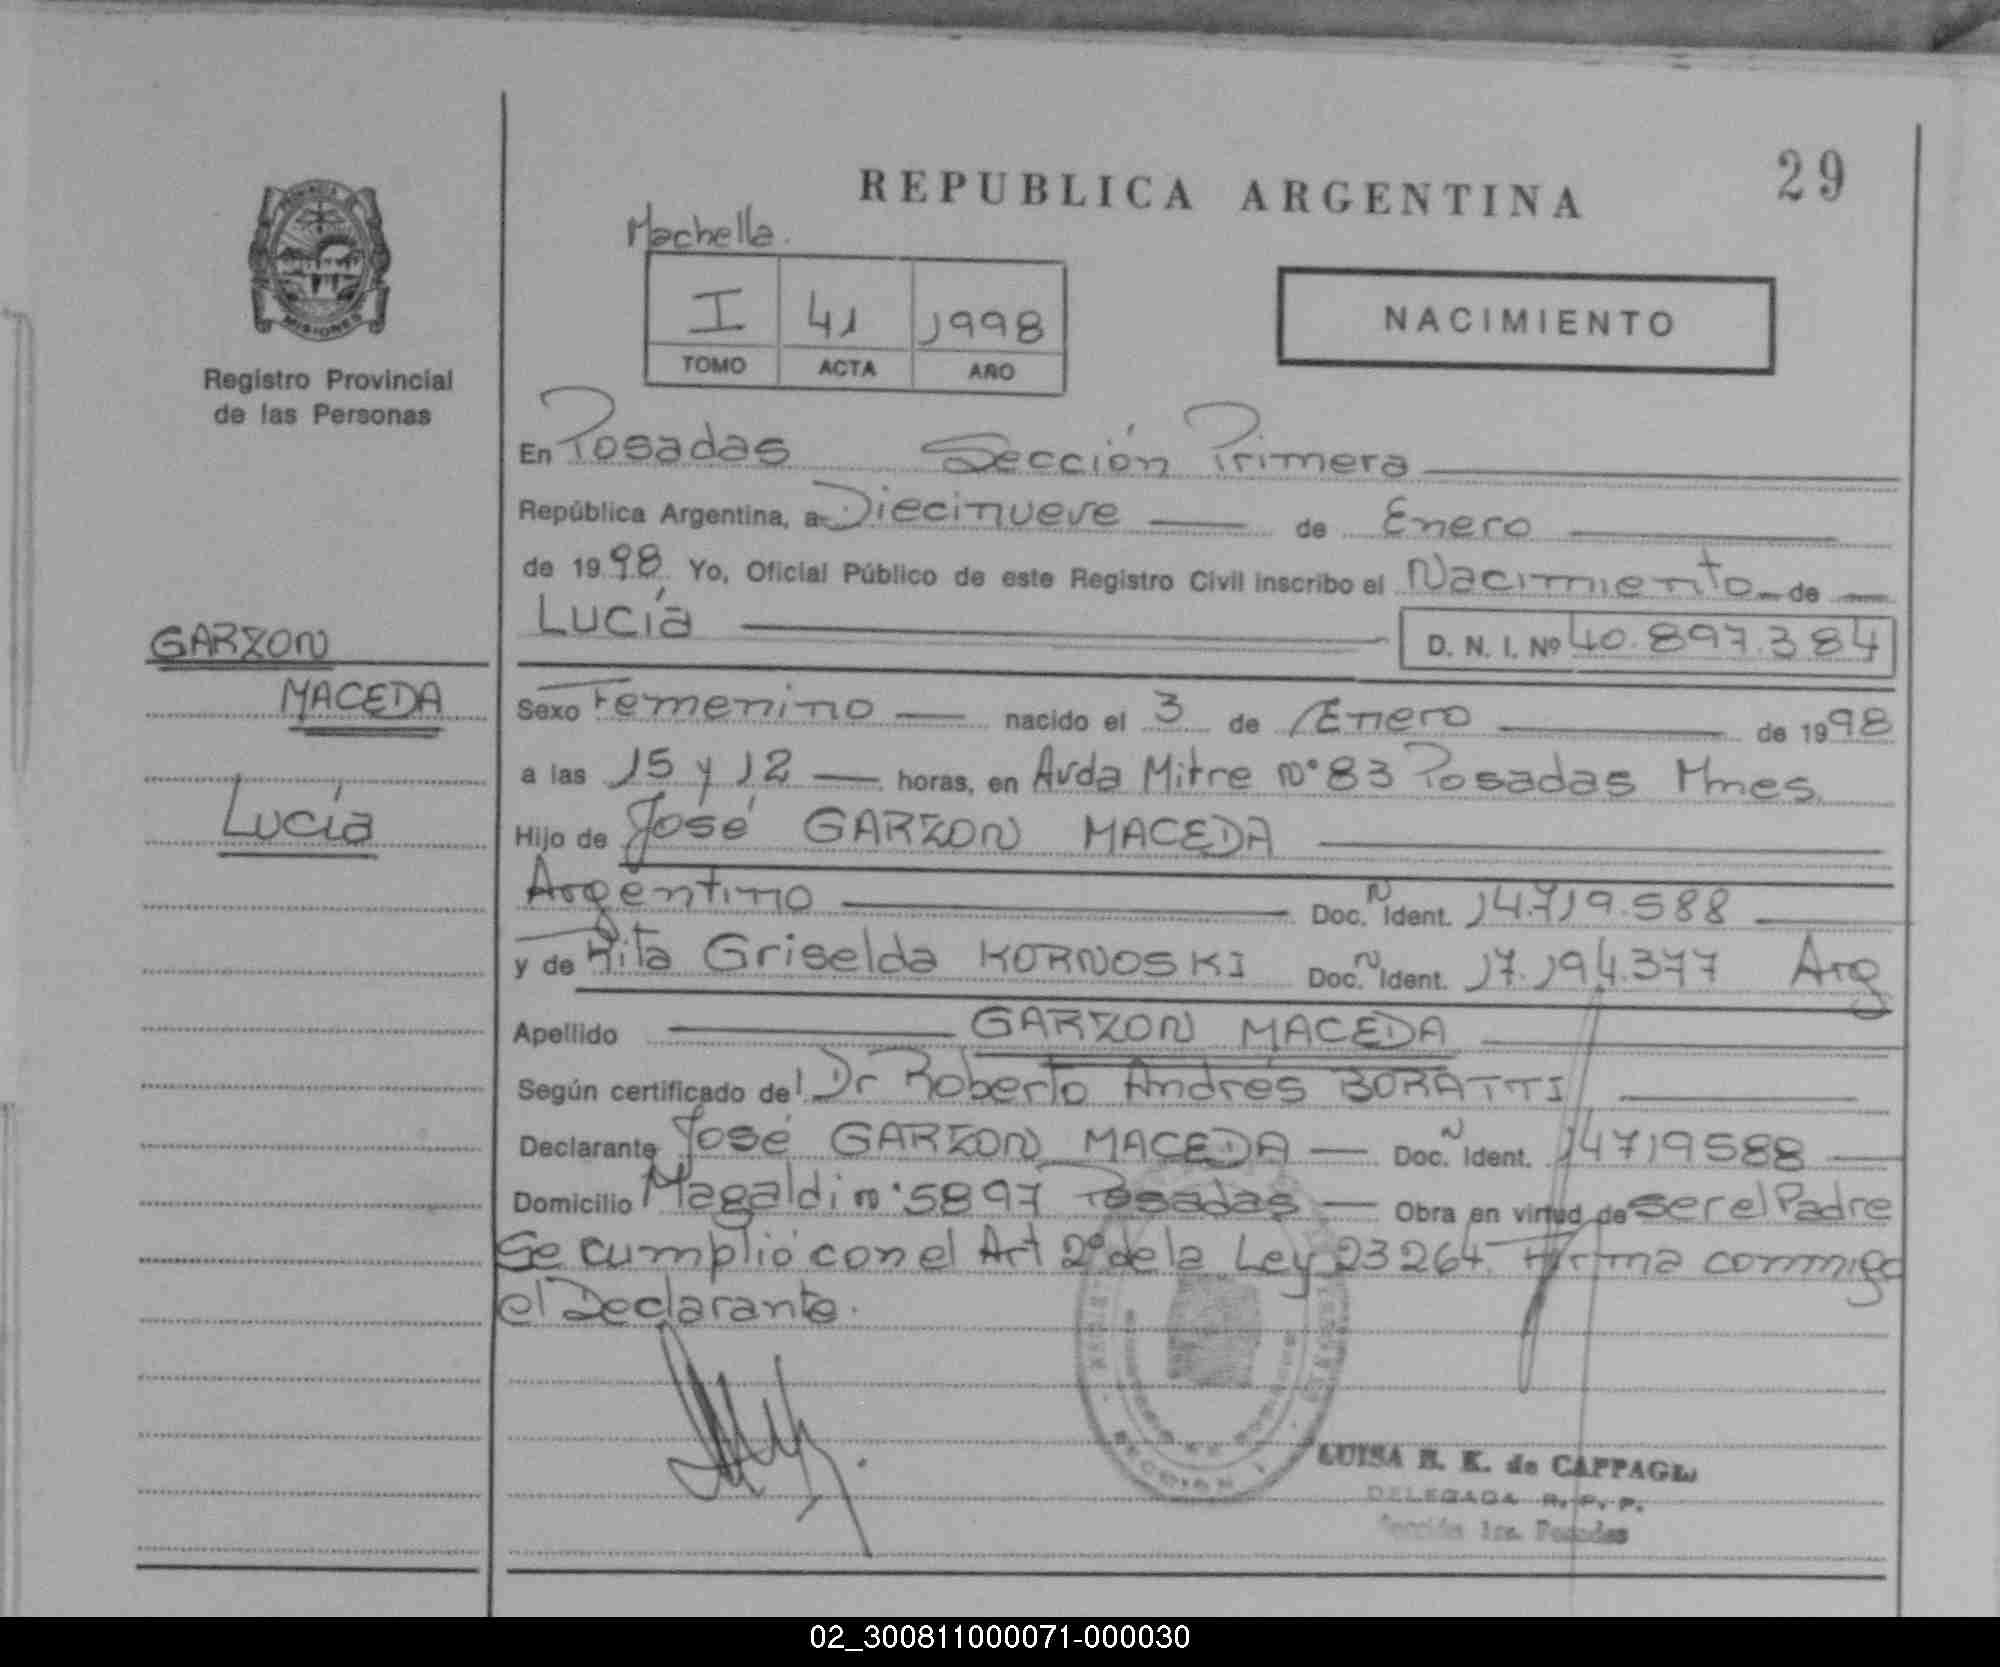 REPUBLICA ARGENTINA
29
Machella.
I 41 1998
TOMO ACTA AÑO
NACIMIENTO
MISIONES
Registro Provincial
de las Personas
En Posadas Sección Primera
República Argentina, a Diecinueve de Enero
de 1998 Yo, Oficial Público de este Registro Civil inscribo el Nacimiento de
Lucía D. N. I. Nº 40.897.384
GARZON
MACEDA
Lucía
Sexo Femenino nacido el 3 de Enero de 1998
a las 15 y 12 horas, en Avda Mitre nº 83 Posadas Mnes.
Hijo de José GARZON MACEDA
Argentino Doc. N Ident. 14.719.588
y de Rita Griselda KORNOSKI Doc. N Ident. 17.194.377 Arg
Apellido GARZON MACEDA
Según certificado del Dr Roberto Andrés BORATTI
Declarante José GARZON MACEDA Doc. N Ident. 14719588
Domicilio Magaldi nº 5897 Posadas Obra en virtud de ser el Padre
Se cumplió con el Art 2º de la Ley 23264. Firma conmigo
el Declarante.
SECCION
LUISA B. K. de CAPPAGLI
DELEGADA R. P. P.
Sección 1ra. Posadas
02_300811000071-000030